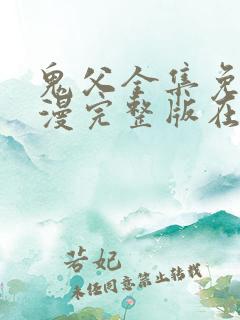 鬼父全集免
漫完整版在
若妃
未经同意禁止转载